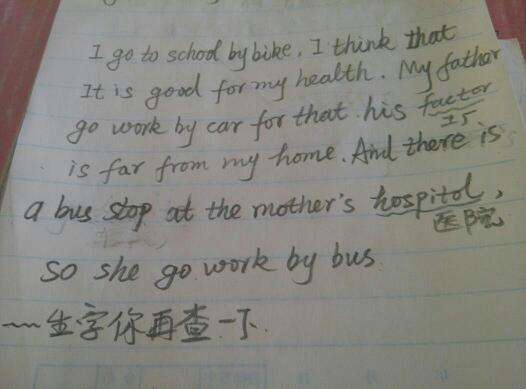 I go to school by bike. I think that
It is good for my health. My father
go work by car for that his factor
工厂
is far from my home. And there is
a bus stop at the mother's hospitol,
医院
so she go work by bus.
生字你再查一下.